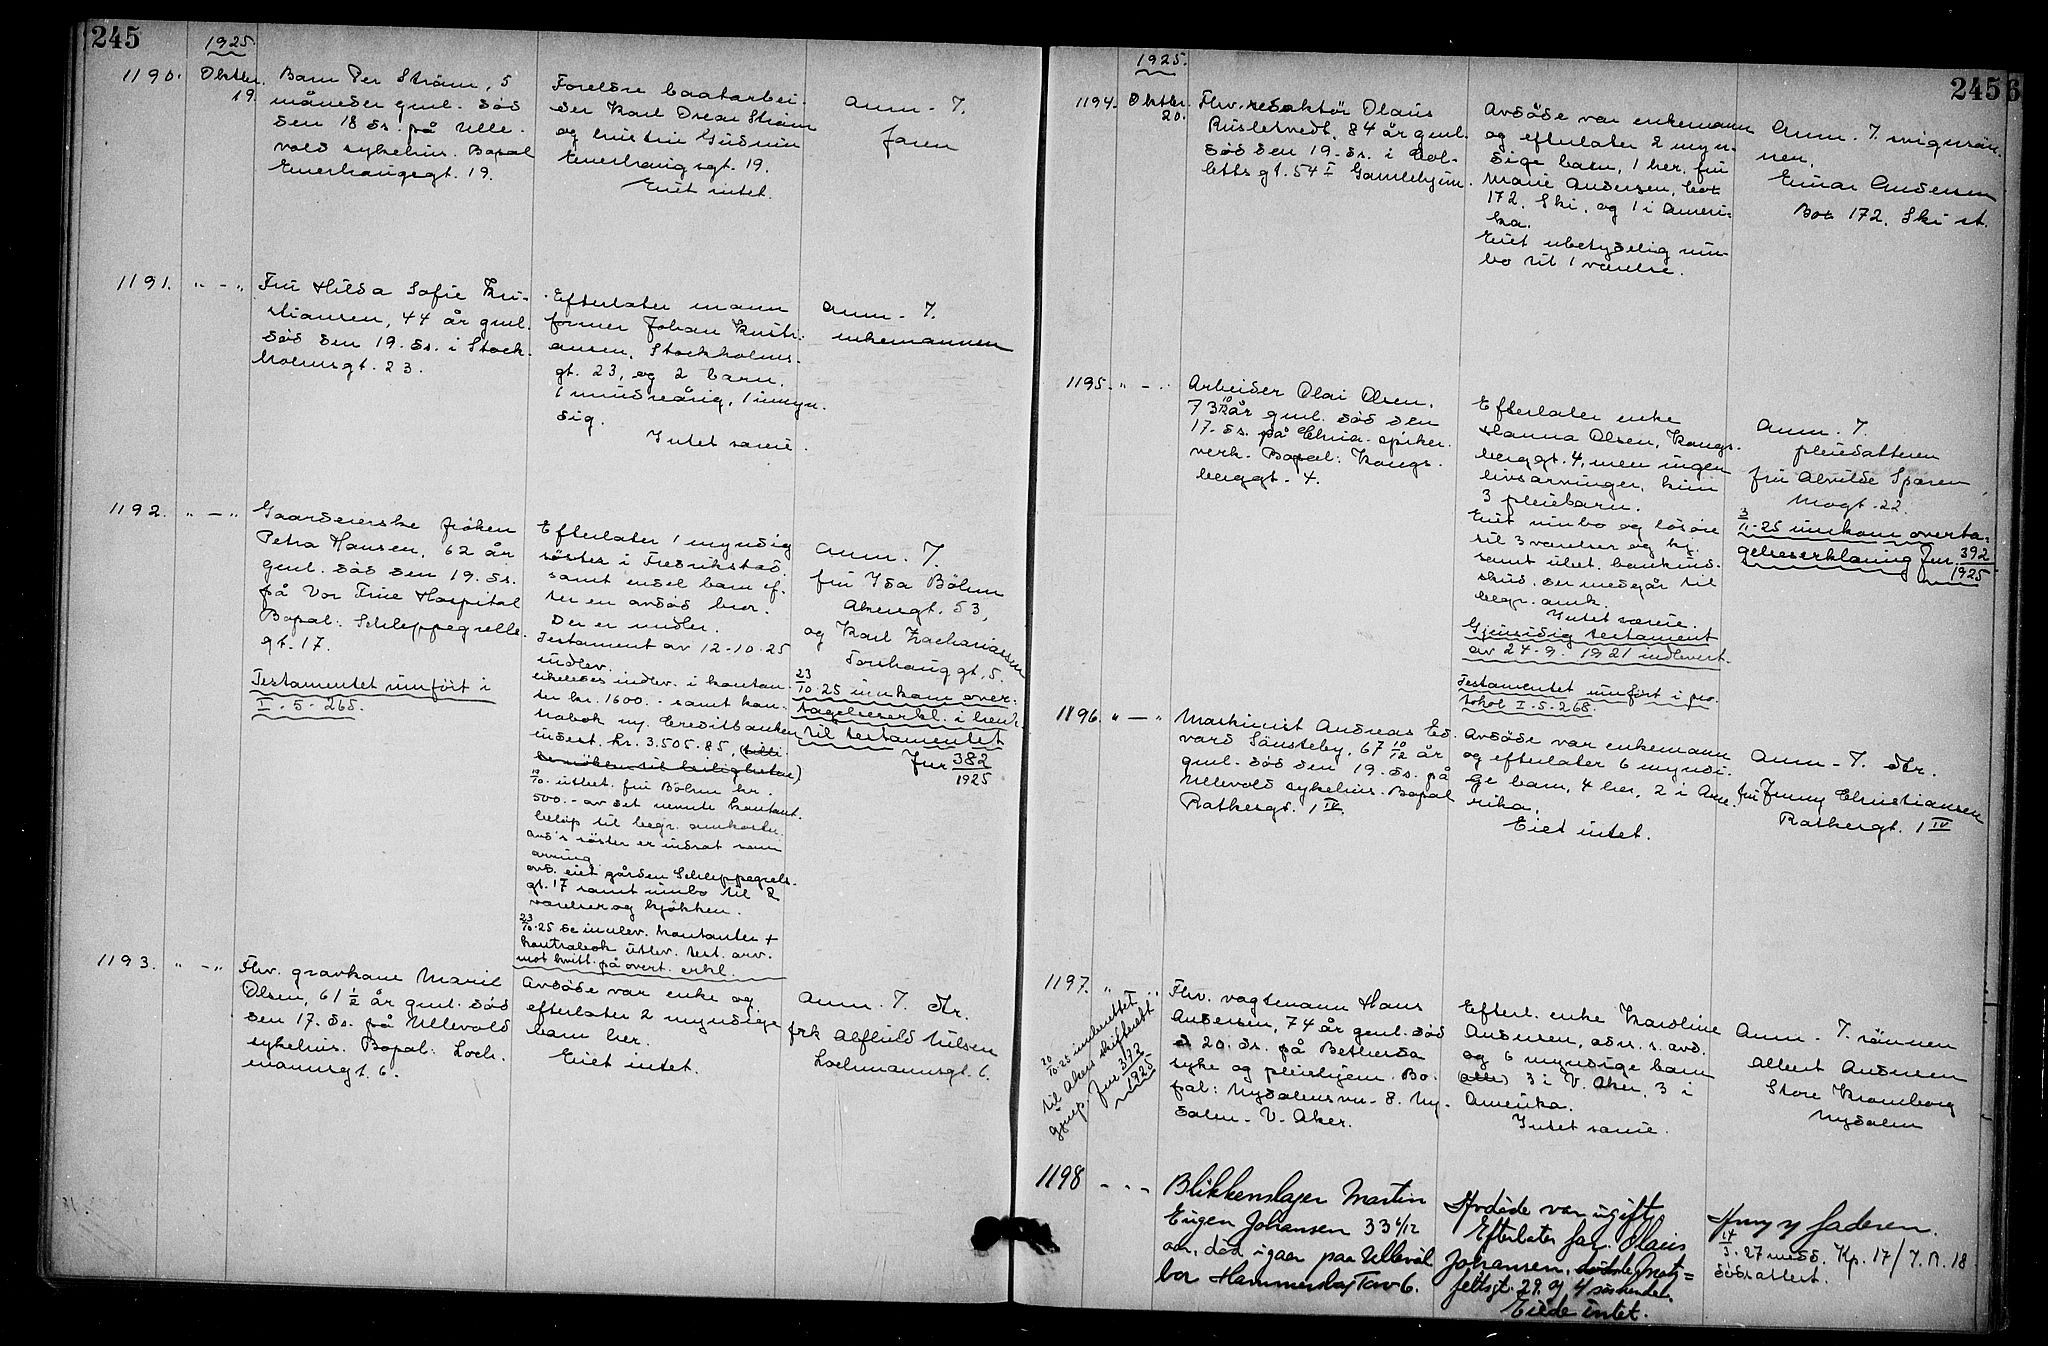 245
1925.
1190.
Oktbr.
19.
Barn Per Strøm, 5
måneder gml. død
den 18 ds. på Ulle-
vold sykehus. Bopæl
Enerhauggt. 19.
Foreldre baatarbei-
der Karl Oscar Strøm
og hustru Gudrun
Enerhaugsgt. 19.
Eiet intet.
Anm. T.
faren
1191.
" — "
Fru Hilda Sofie Kri-
stiansen, 44 år gml.
død den 19. ds. i Stock-
holmsgt. 23.
Efterlater mann
former Johan Kristi-
ansen, Stockholms-
gt. 23, og 2 barn,
1 mindreårig, 1 umyn-
dig.
Intet særeie.
Anm. T.
enkemannen
1192.
" — "
Gaardeierske frøken
Petra Hansen, 62 år
gml. død den 19. ds.
på Vor Frue Hospital
Bopæl: Schleppegrells
gt. 17.
Testamentet innført i
I. 5. 265.
Efterlater 1 myndig
søster i Fredrikstad
samt endel barn ef-
ter en avdød bror.
Der er midler.
Testament av 12-10-25
indlev.
likeledes indlev. i kontan-
ter kr. 1600.- samt kon-
trabok ny. Creditbanken
indest. kr. 3.505.85,
19/10. utbet. fru Bøhm kr.
500.- av det nevnte kontant-
beløp til begr. omkostn.
avd's søster er indsat som
arving
avd. eiet gården Schleppegrels-
gt. 17 samt innbo til 2
værelser og kjøkken.
23/10-25 de innlev. kontanter +
kontrabok utlev. test. arv.
mot kvitt. på overt. erkl.
Anm. T.
fru Ida Bøhm
Akersgt. 53,
og Karl Zachariassen
Torshauggt. 5.
23/10-25 innkom over-
tagelseserkl. i henh.
til testamentet
Jnr 382/1925
1193.
" — "
Fhv. gravkone Marie
Olsen, 61 1/2 år gml. død
den 17. ds. på Ullevold
sykehus. Bopæl: Loch-
mannsgt. 6.
Avdøde var enke og
efterlater 2 myndige
barn her.
Eiet intet.
Anm. T. dtr.
frk Alfhild Nilsen
Lochmannsgt. 6.
245
6
1925.
1194.
Oktbr.
20.
Fhv. redaktør Olaus
Rusletvedt, 84 år gml.
død den 19. ds. i Col-
lettsgt. 54 I Gamlehjem.
Avdøde var enkemann
og efterlater 2 myn-
dige barn, 1 her, fru
Marie Andersen, box
172, Ski, og 1 i Ameri-
ka.
Eiet ubetydelig inn-
bo til 1 værelse.
Anm. T. svigersøn-
nen,
Einar Andersen
Box 172, Ski st.
1195.
" — "
Arbeider Olai Olsen,
73 10/12 år gml. død den
17. ds. på Chria. spiker-
verk. Bopæl: Kongs-
berggt. 4.
Efterlater enke
Hanna Olsen, Kongs-
berggt. 4, men ingen
livsarvinger, kun
3 pleiebarn.
Eiet innbo og løsøre
til 3 værelser og kj.
samt ubet. bankind-
skud, der medgår til
begr. omk.
Intet særeie.
Gjensidig testament
av 24-9-1921 indlevert.
Testamentet innført i pro-
tokol I. 5. 268.
Anm. T.
pleiedatteren
fru Alvilde Sparen
Mogt. 22.
3/11-25 innkom overta-
gelseserklæring Jnr. 392/1925
1196.
" — "
Maskinist Andreas Ed-
vard Sønsteby, 67 10/12 år
gml. død den 19. ds. på
Ullevold sykehus. Bopæl
Ratkesgt. 1 IV.
Avdøde var enkemann
og efterlater 6 myndi-
ge barn, 4 her, 2 i Ame-
rika.
Eiet intet.
Anm. T. dtr.
fru Jenny Christiansen
Ratkesgt. 1 IV
1197.
" — "
20/10-25 innberettet
til Akers skifterett
Jnr 372/1925
Fhv. vagtmann Hans
Andersen, 74 år gml. død
d 20. ds. på Bethesda
syke og pleiehjem. Bo-
pæl: Nydalensvn. 8. Ny-
dalen. V. Aker.
Efterl. enke Karoline
Andersen, adr. s. avd.
og 6 myndige barn
3 i V. Aker, 3 i
Amerika.
Intet særeie.
Anm. T. sønnen
Albert Andersen
Store Kronborg
Nydalen
1198
" — "
Blikkenslager Martin
Eugen Johansen 33 4/12
aar, død igaar paa Ullevål
bor Hammerstag Tav 6.
Avdøde var ugift
Efterlater far. Olaus
Johansen, Mots=
feltsgt. 29. og 4 søskende.
Eiede intet.
Anm. T faderen.
14/3.27 medd. Kp. 17/T. A. 18
dødsattest.